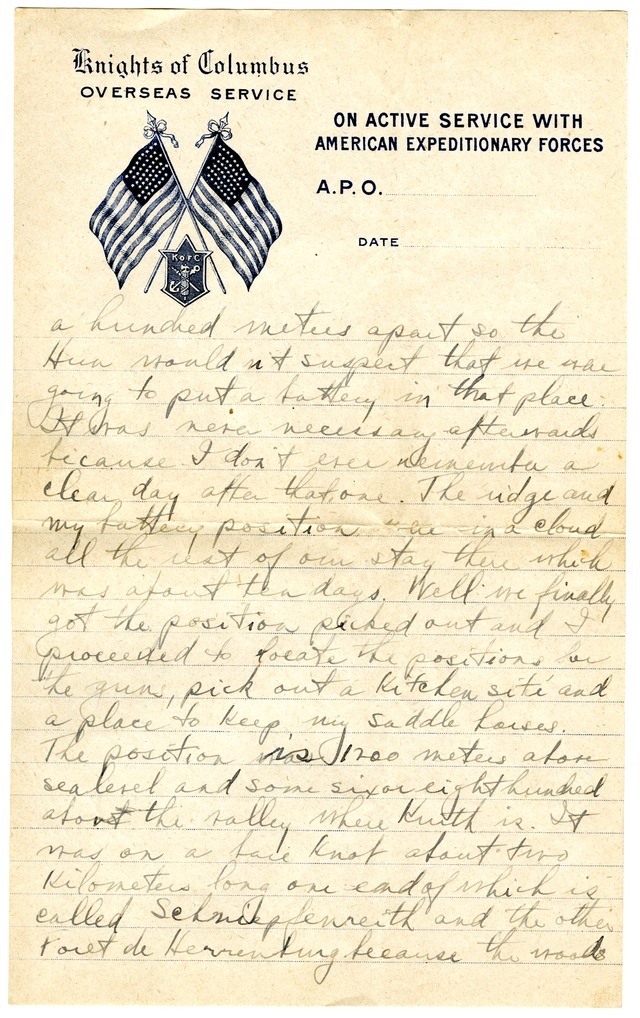 Knights of Columbus
OVERSEAS SERVICE
ON ACTIVE SERVICE WITH
AMERICAN EXPEDITIONARY FORCES
A.P.O.
DATE
K of C
a hundred meters apart so the
Hun would nt suspect that we were
going to put a battery in that place.
It was never necessary afterwards
because I don't ever remember a
clear day after that one. The ridge and
my battery position were in a cloud
all the rest of our stay there which
was about ten days. Well we finally
got the position picked out and I
proceeded to locate the positions for
the guns, pick out a kitchen site and
a place to keep my saddle horses.
The position is 1200 meters above
sea level and some six or eight hundred
above the valley where Kruth is. It
was on a bare knob about two
kilometers long one end of which is
called Schniepfenreith and the other
Foret de Herrenburg because the woods